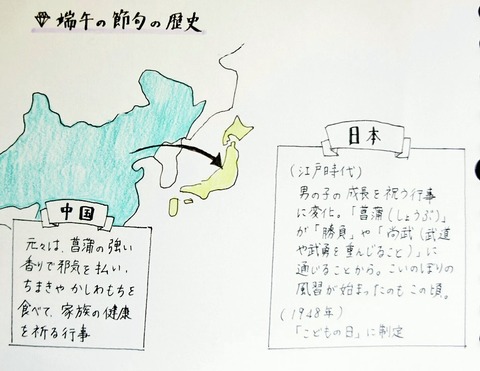 端午の節句の歴史
中国
元々は、菖蒲の強い
香りで邪気を払い、
ちまきや かしわもちを
食べて、家族の健康
を祈る行事
日本
(江戸時代)
男の子の成長を祝う行事
に変化。「菖蒲(しょうぶ)」
が「勝負」や「尚武(武道
や武勇を重んじること)」に
通じることから。こいのぼりの
風習が始まったのもこの頃。
(1948年)
「こどもの日」に制定